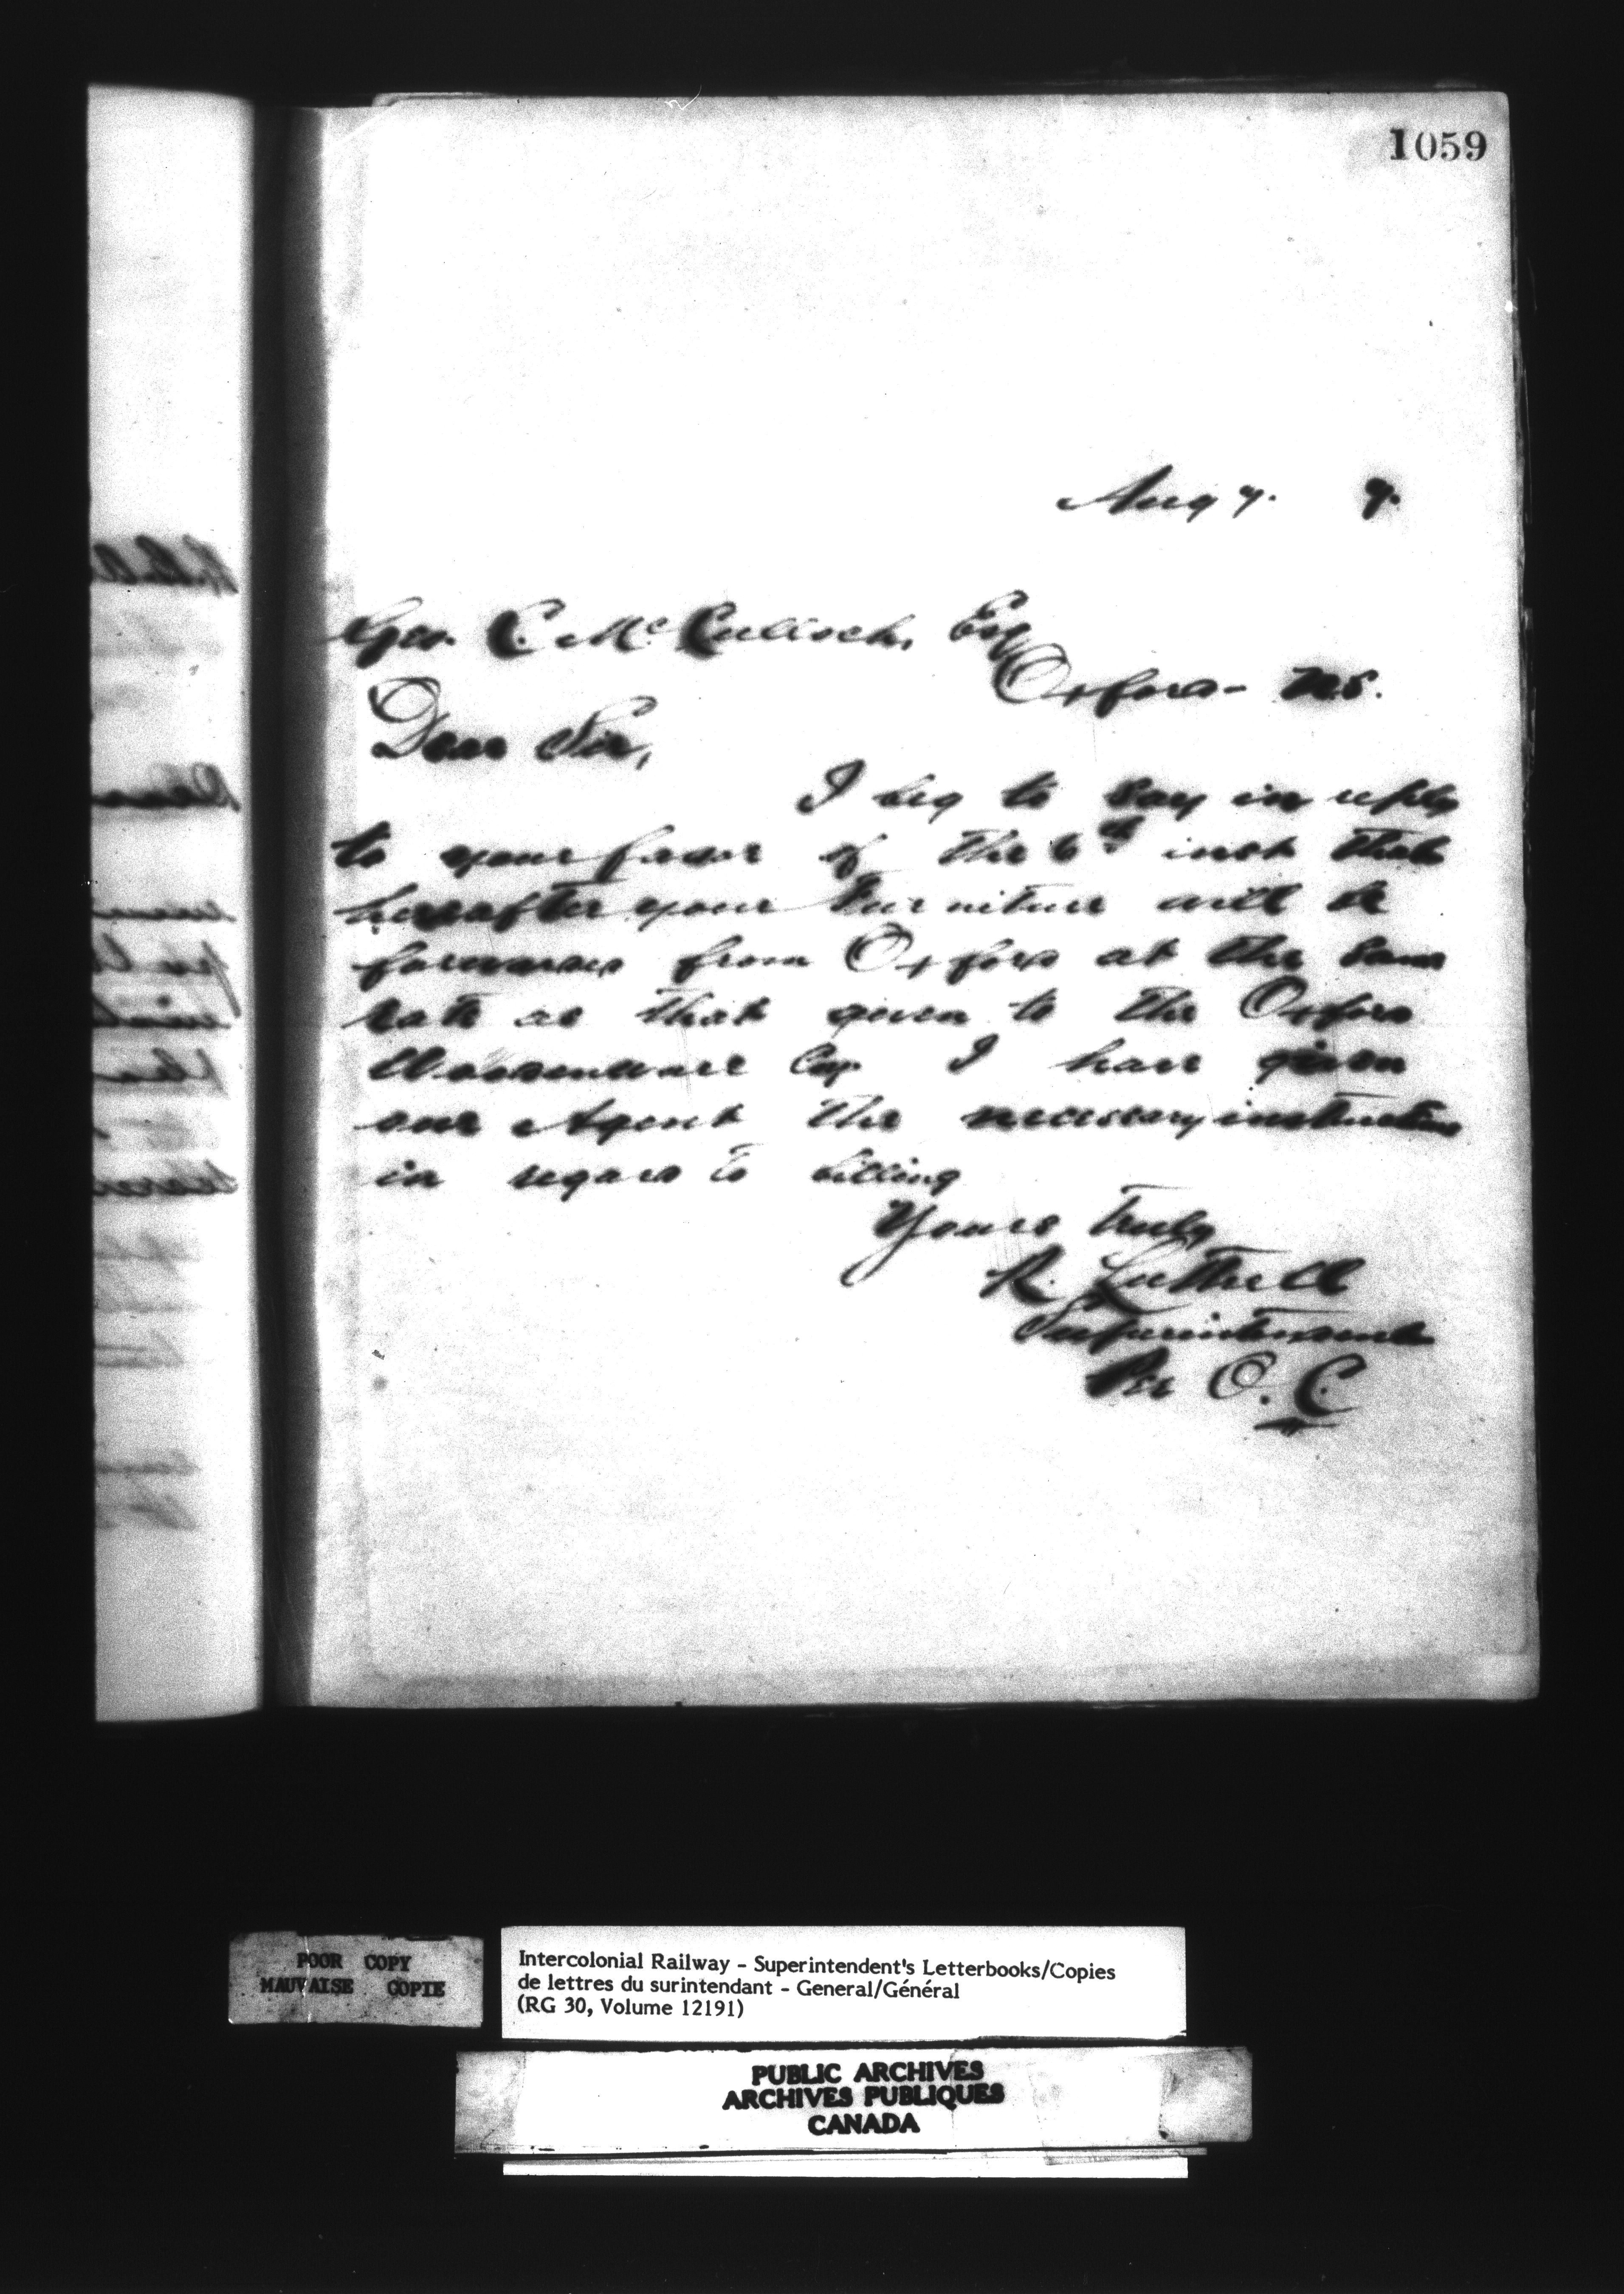 1059
Aug 7. 7.
Geo. C. McCulloch, Esq
Oxford - N.S.
Dear Sir,
I beg to say in reply
to your favor of the 6th inst that
hereafter your Furniture will be
forwarded from Oxford at the same
rate as that given to the Oxford
Woodenware Coy. I have given
our Agent the necessary instructions
in regard to billing
Yours truly
R. Luttrell
Superintendent
Per O. C.
POOR COPY
MAUVAISE COPIE
Intercolonial Railway - Superintendent's Letterbooks/Copies
de lettres du surintendant - General/Général
(RG 30, Volume 12191)
PUBLIC ARCHIVES
ARCHIVES PUBLIQUES
CANADA